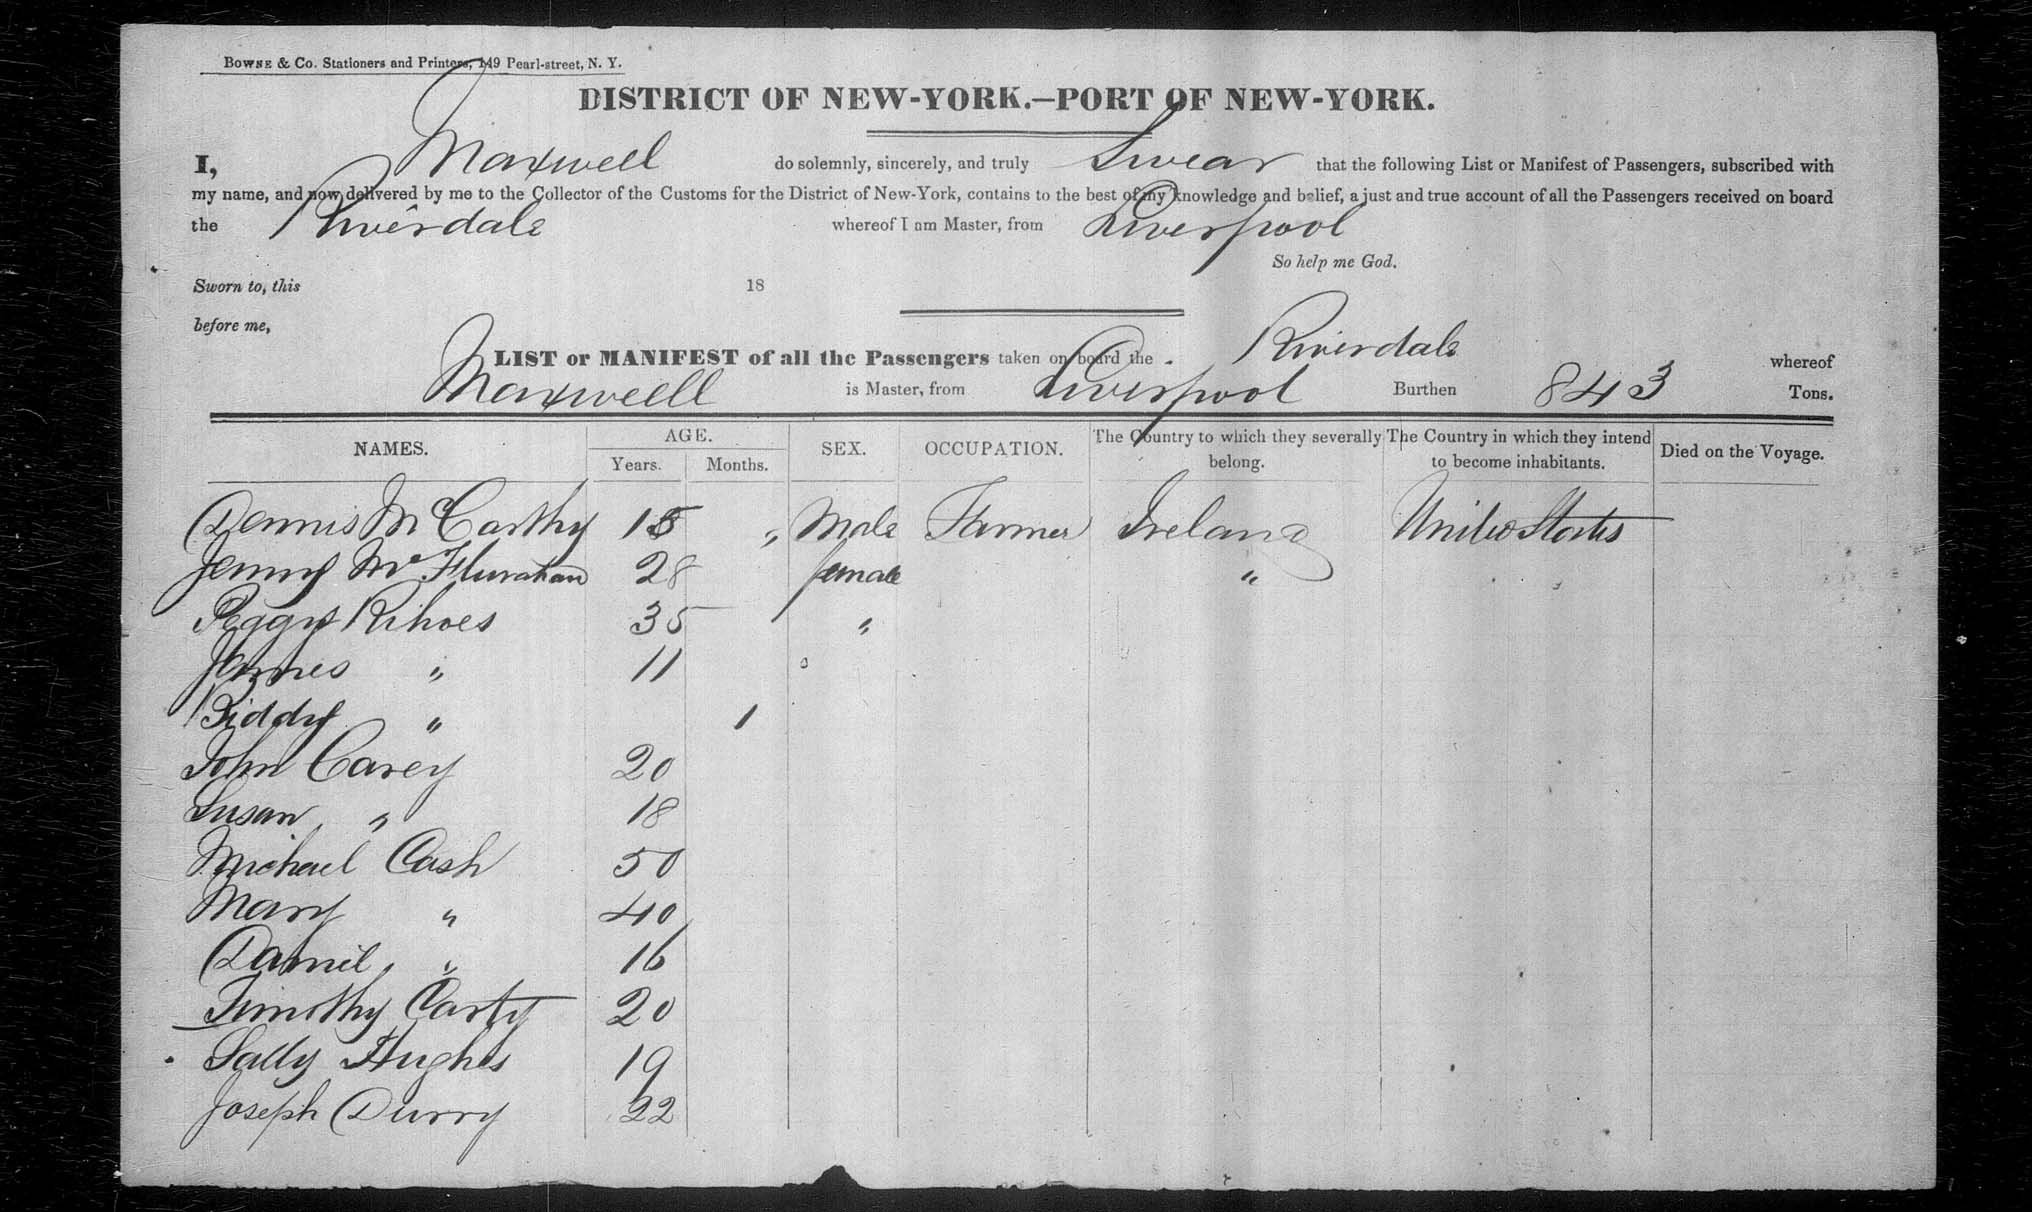 BOWNE & Co. Stationers and Printers, 149 Pearl-street, N. Y.
DISTRICT OF NEW-YORK.—PORT OF NEW-YORK.
I, Maxwell do solemnly, sincerely, and truly Swear that the following List or Manifest of Passengers, subscribed with
my name, and now delivered by me to the Collector of the Customs for the District of New-York, contains to the best of my knowledge and belief, a just and true account of all the Passengers received on board
the Riverdale whereof I am Master, from Liverpool
So help me God.
Sworn to, this 18
before me,
LIST or MANIFEST of all the Passengers taken on board the Riverdale whereof
Maxwell is Master, from Liverpool Burthen 843 Tons.
NAMES. AGE. Years. Months. SEX. OCCUPATION. The Country to which they severally belong. The Country in which they intend to become inhabitants. Died on the Voyage.
Dennis McCarthy 15 " Male Farmer Ireland United States
Jenny Mc 28 female "
Peggy 35 "
James " 11
Biddy " 1
John Carey 20
Susan " 18
Michael Cash 50
Mary " 40
Daniel " 16
Timothy Carty 20
Sally Hughes 19
Joseph Durry 22